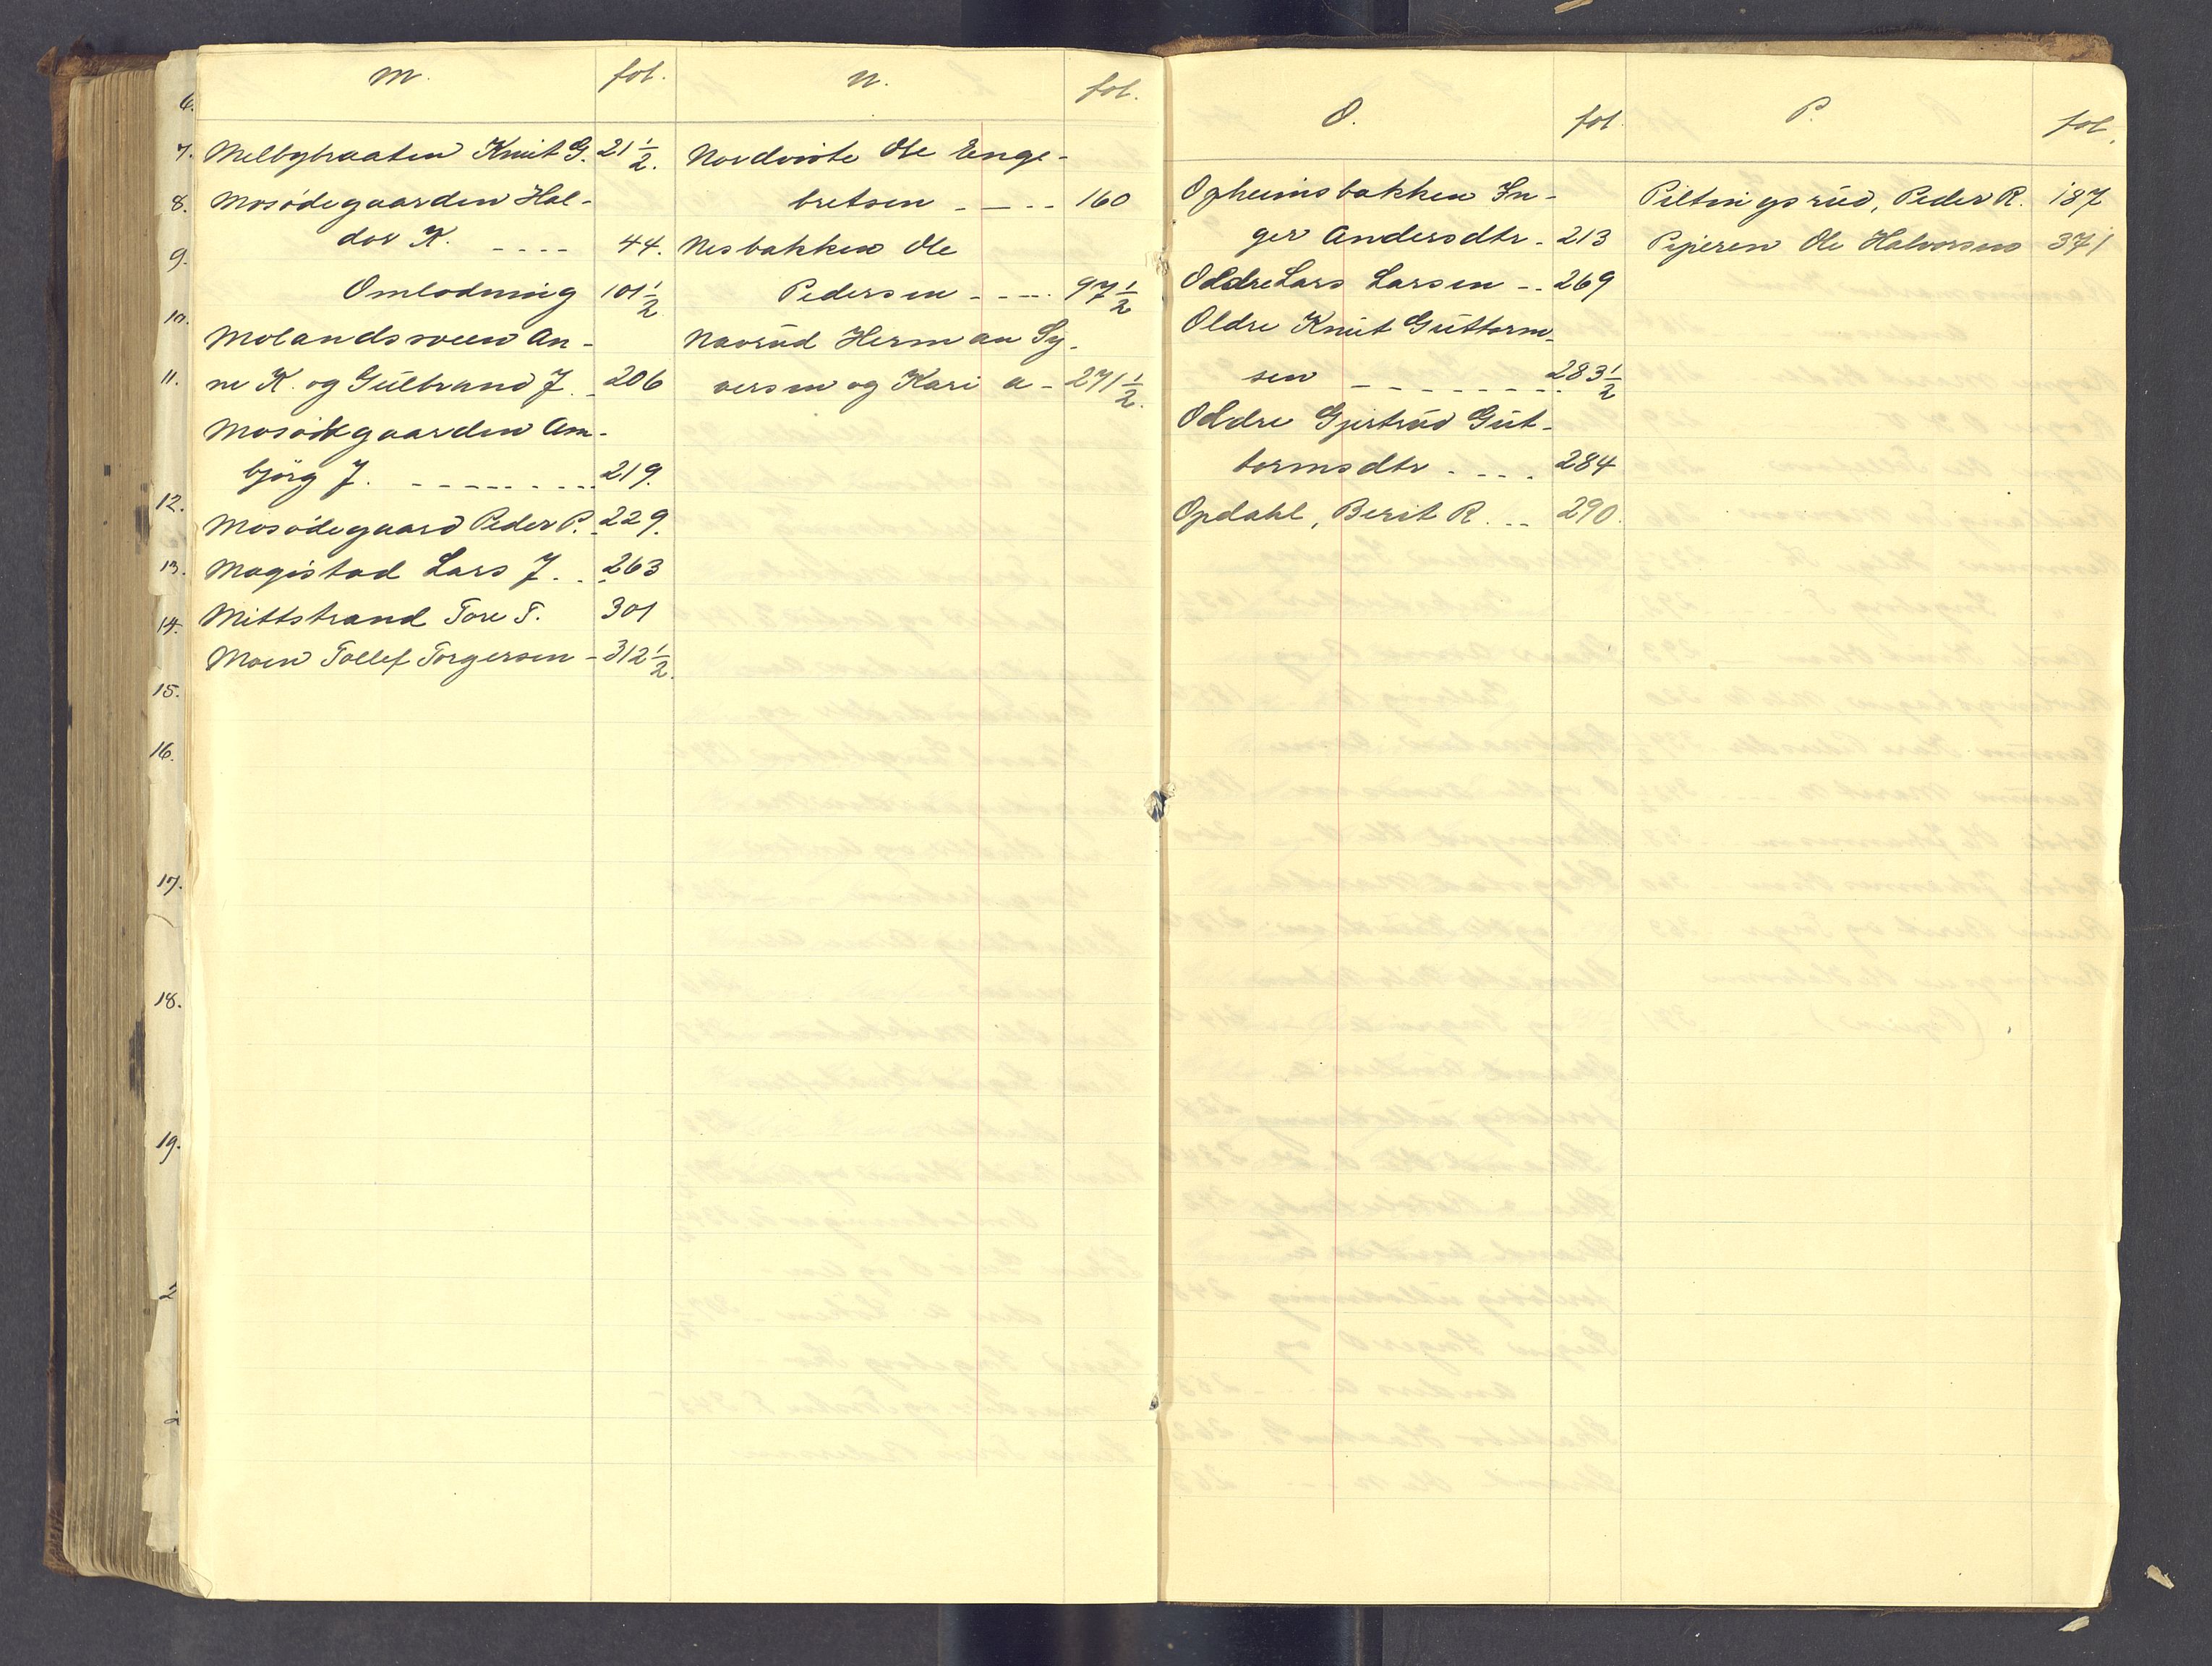 M. fol.
Melbybraaten Knut G. 21 1/2.
Mosödegaarden Hal-
dor K. - - - - 44.
Omlodning 101 1/2
Molandssveen An-
ne K. og Gulbrand J. - 206
Mosödegaarden Am-
björg J. - - - - - - - - 219.
Mosödegaard Peder P. - 229.
Magistad Lars J. . - 263
Mittstrand Tore T. 301
Moen Tollef Torgersen - 312 1/2.
N. fol.
Nordviste Ole Enge-
bretsen - - - - 160
Nesbakken Ole
Pedersen - - - - 97 1/2
Navrud Herman Sy-
versen og Kari A - 271 1/2.
O. fol.
Opheimsbakken In-
ger Andersdtr - 213
Oldre Lars Larsen - - 269
Oldre Knut Guttorm-
sen - - - - - - - 283 1/2
Oldre Gjertrud Gut-
tormsdtr . - - . 284
Opdahl, Berit R. - - 290.
P. fol.
Piltingsrud, Peder R. 187
Piperen Ole Halvorsen 371
6.
7.
8.
9.
10.
11.
12.
13.
14.
15.
16.
17.
18.
19.
2
2